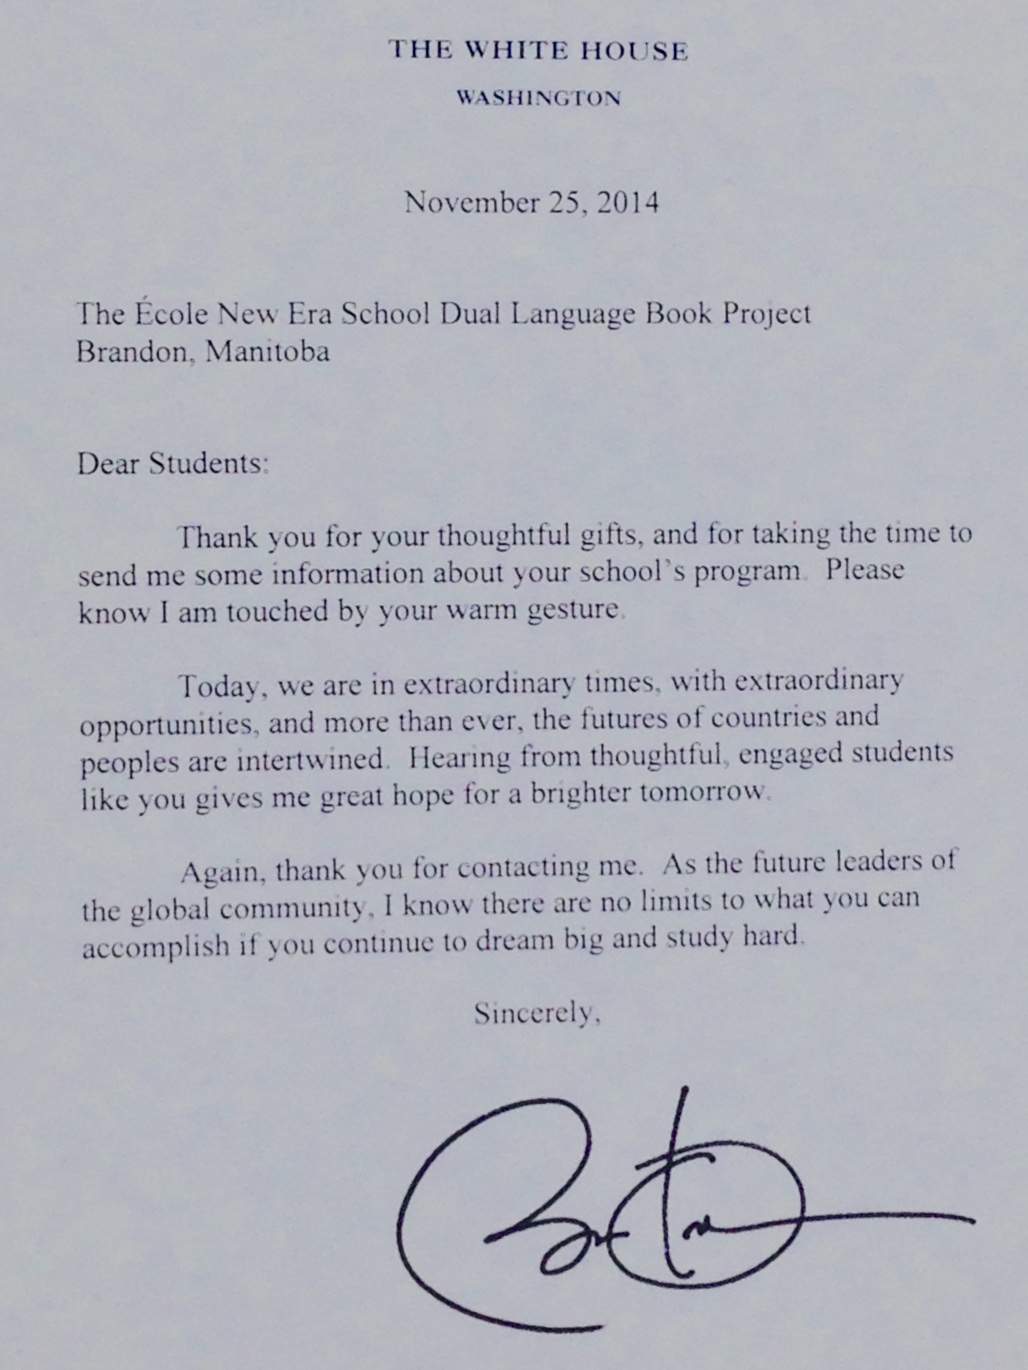 THE WHITE HOUSE
WASHINGTON
November 25, 2014
The École New Era School Dual Language Book Project
Brandon, Manitoba
Dear Students:
Thank you for your thoughtful gifts, and for taking the time to
send me some information about your school's program. Please
know I am touched by your warm gesture.
Today, we are in extraordinary times, with extraordinary
opportunities, and more than ever, the futures of countries and
peoples are intertwined. Hearing from thoughtful, engaged students
like you gives me great hope for a brighter tomorrow.
Again, thank you for contacting me. As the future leaders of
the global community, I know there are no limits to what you can
accomplish if you continue to dream big and study hard.
Sincerely,